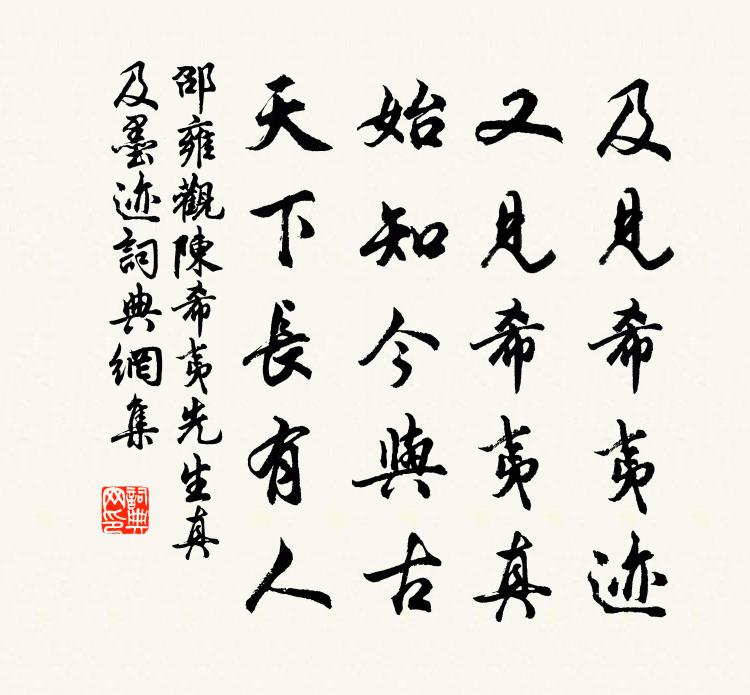 及見希夷迹
又見希夷真
始知今與古
天下長有人
邵雍觀陳希夷先生真
及墨迹詞典網集
詞典
网印